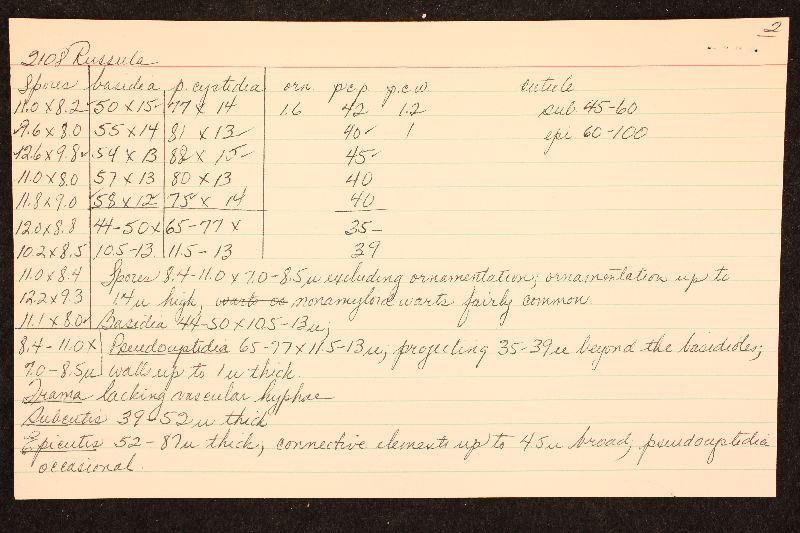 2
2108 Russula
Spores basidia p. cystidia orn. p.c.p. p.c.w. cuticle
11.0 x 8.2 50 x 15 77 x 14 1.6 42 1.2 sub. 45-60
9.6 x 8.0 55 x 14 81 x 13 40 1 epi 60-100
12.6 x 9.8 54 x 13 82 x 15 45
11.0 x 8.0 57 x 13 80 x 13 40
11.8 x 9.0 58 x 12 75 x 14 40
12.0 x 8.8 44-50 x 65-77 x 35-
10.2 x 8.5 10.5-13 11.5-13 39
11.0 x 8.4 Spores 8.4-11.0 x 7.0-8.5 u excluding ornamentation; ornamentation up to
12.2 x 9.3 14 u high, nonamyloid warts fairly common.
11.1 x 8.0 Basidia 44-50 x 10.5-13 u;
8.4-11.0 x Pseudocystidia 65-77 x 11.5-13 u; projecting 35-39 u beyond the basidioles;
7.0-8.5 u walls up to 1 u thick.
Trama lacking vascular hyphae
Subcutis 39-52 u thick
Epicutis 52-87 u thick, connective elements up to 45 u broad; pseudocystidia
occasional.